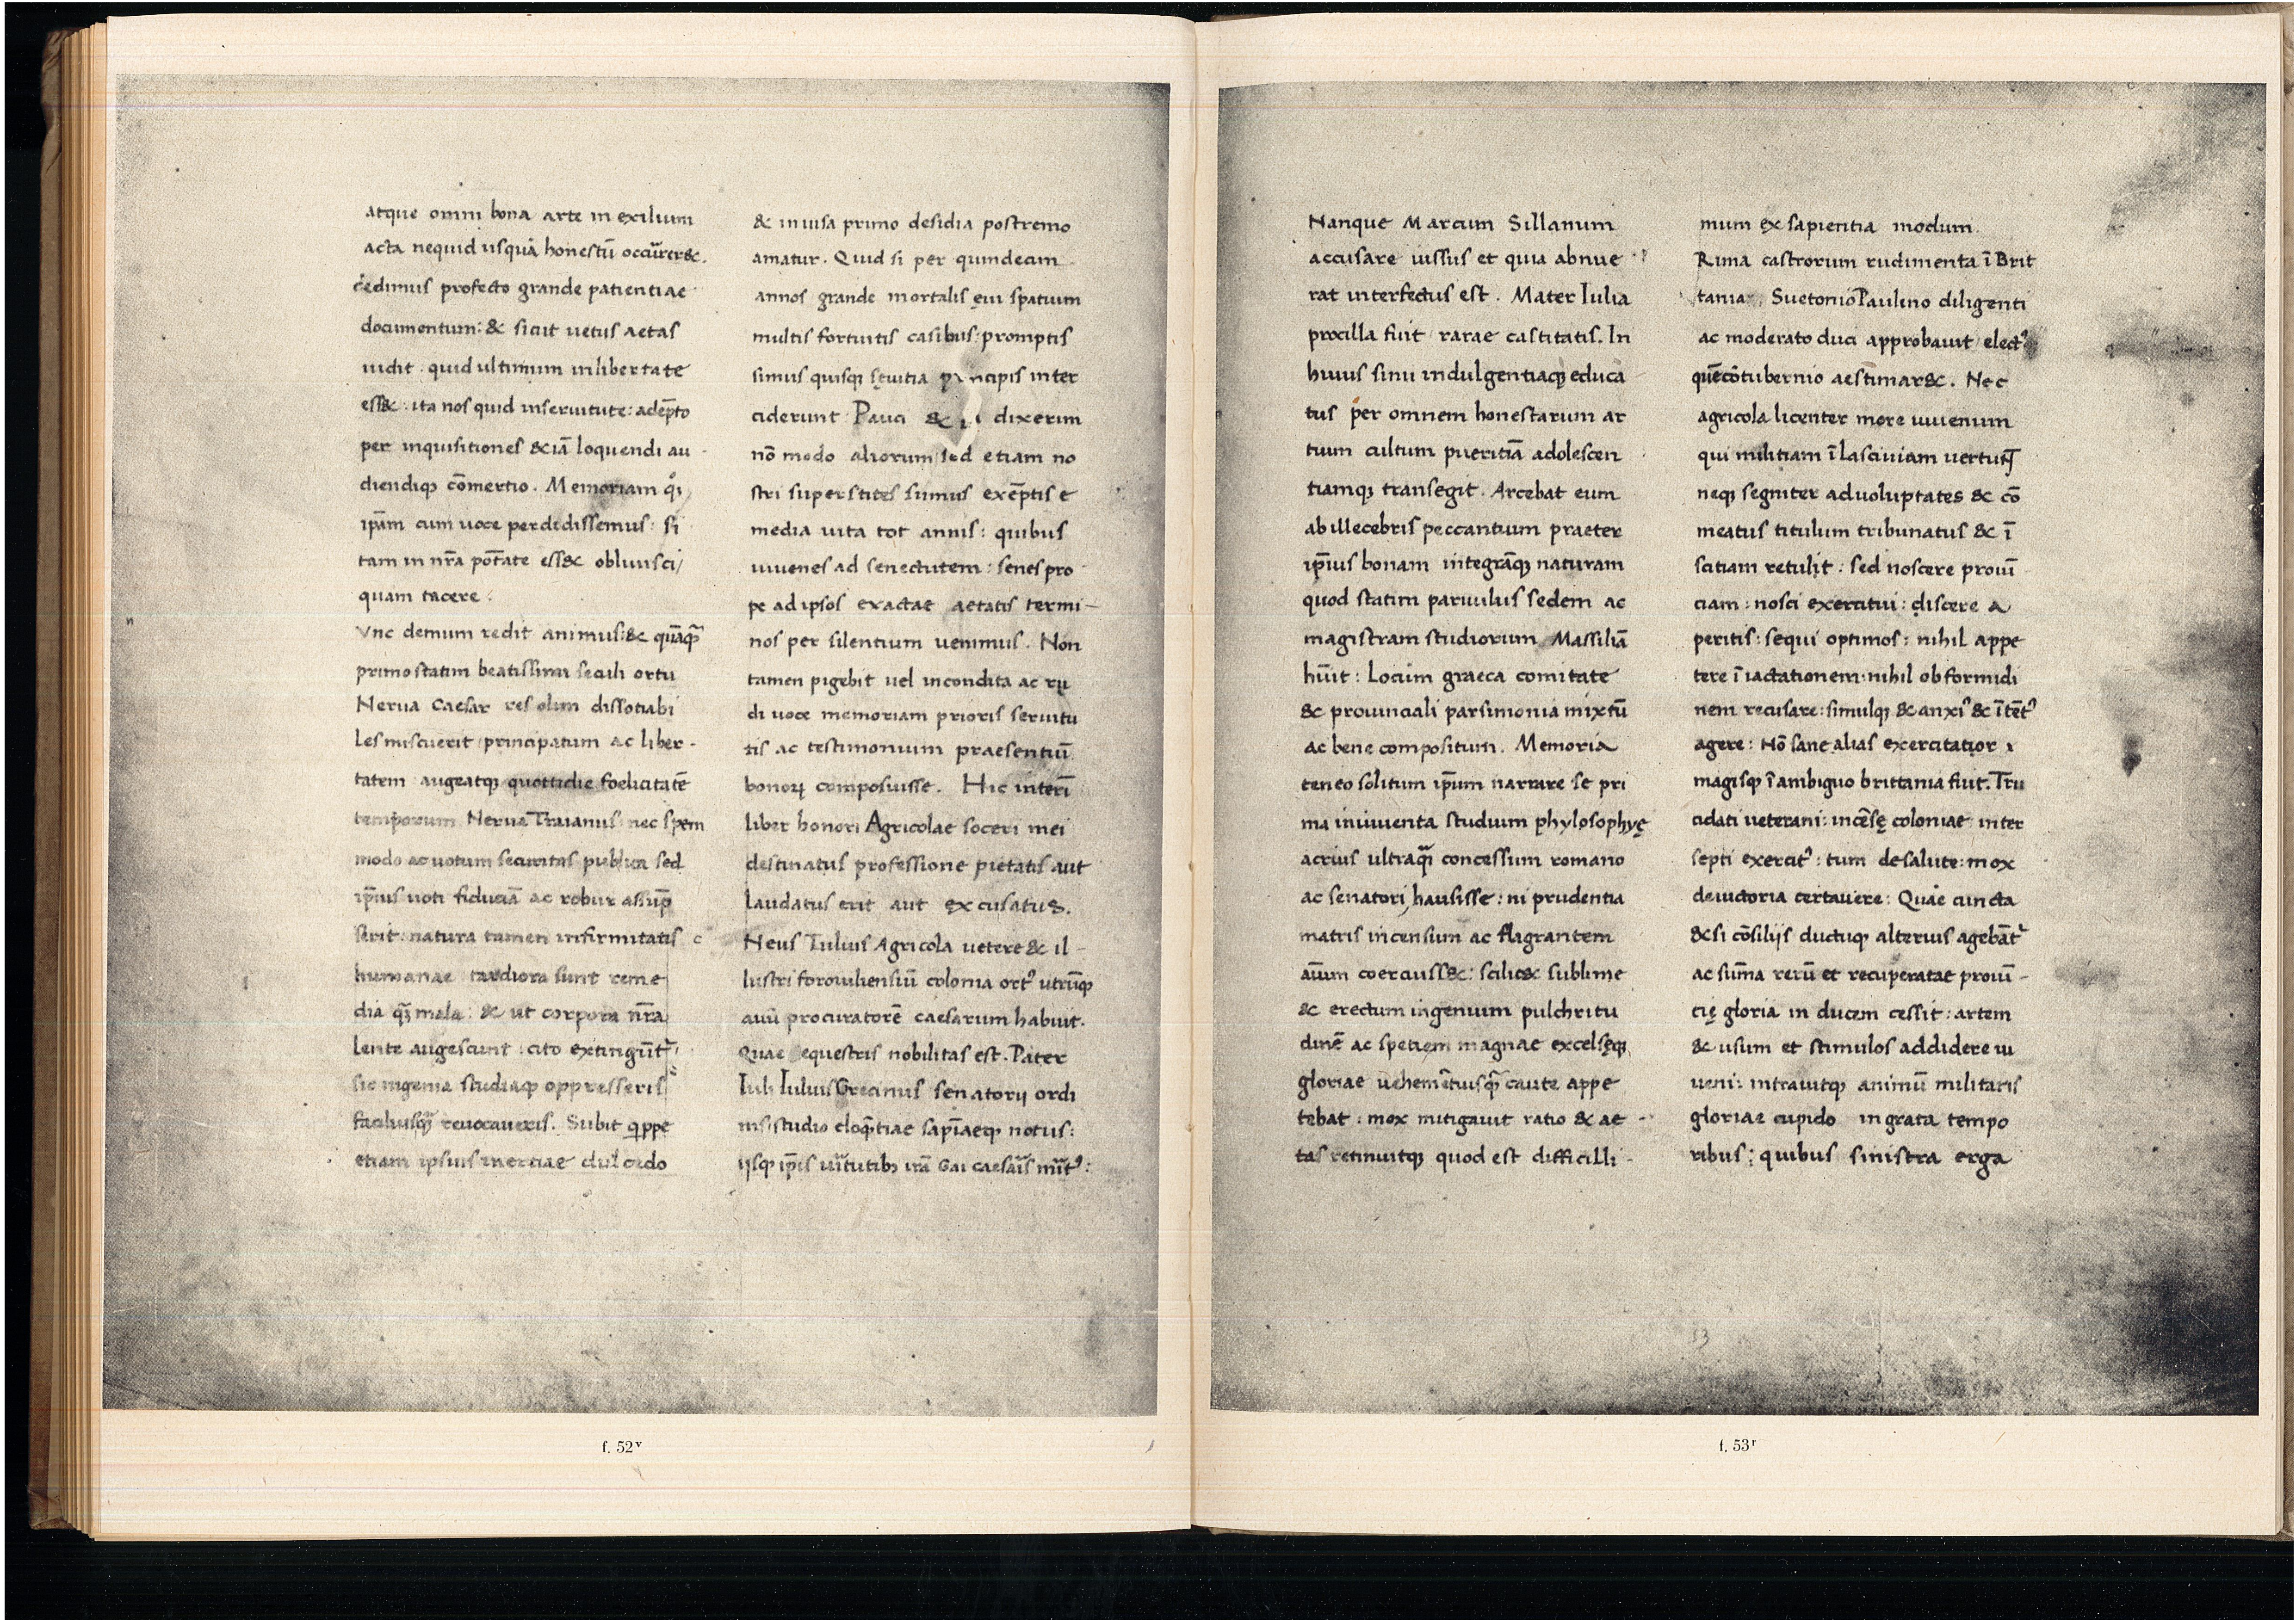 atque omni bona arte in exilium
acta nequid usquā honestū occūrer&.
dedimus profecto grande patientiae
documentum: & sicut uetus aetas
uidit quid ultimum in libertate
ess& ita nos quid inseruitute: adēpto
per inquisitiones &iā loquendi au
diendiq; cōmertio. Memoriam q̊
ip̄am cum uoce perdidissemus: si
tam in nr̄a pōtate ess& obliuisci
quam tacere:
vnc demum redit animus: & quāq̄
primo statim beatissimi seculi ortu
Nerua Caesar res olim dissotiabi
les miscuerit principatum ac liber-
tatem augeatq; quottidie foelicitatē
temporum Nerua Traianus nec spem
modo ac uotum securitas publica sed
ip̄ius uoti fiduciā ac robur assūp
serit: natura tamen infirmitatis
humanae tardiora sunt reme
dia q̄ mala: & ut corpora nr̄a
lente augescunt: cito extingūt᷑
sic ingenia studiaq; oppresseris
facilius q̄ reuocaueris. Subit q̄ppe
etiam ipsius inertiae dulcedo
& inuisa primo desidia postremo
amatur. Quid si per quindecim
annos grande mortalis ęui spatium
multis fortuitis casibus: promptis
simus quisq; sęuitia principis inter
ciderunt Pauci & dixerim
nō modo aliorum sed etiam no
stri superstites sumus exēptis e
media uita tot annis: quibus
iuuenes ad senectutem: senes pro
pe ad ipsos exactae aetatis termi-
nos per silentium uenimus. Non
tamen pigebit uel incondita ac ru
di uoce memoriam prioris seruitu
tis ac testimonium praesentiū
bonoꝝ composuisse. Hic interī
liber honori Agricolae soceri mei
destinatus professione pietatis aut
laudatus erit aut excusatus.
Neus Iulius Agricola uetere & il-
lustri foroiuliensiū colonia ort᾽ utrūq;
auū procuratorē caesarum habuit.
Quae equestris nobilitas est. Pater
Iuli Iulius Grecinus senatorij ordi
nis studio eloq̄tiae sapīaeq; notus:
ijsq; ip̄is uĩtutib; irā Gai caesaĩs mĩt᾽:
Nanque Marcum Sillanum
accusare iussus et quia abnue
rat interfectus est. Mater Iulia
procilla fuit rarae castitatis. In
huius sinu indulgentiaq; educa
tus per omnem honestarum ar
tium cultum pueritiā adolescen
tiamq; transegit. Arcebat eum
ab illecebris peccantium praeter
ip̄ius bonam integrāq; naturam
quod statim paruulus sedem ac
magistram studiorum Massiliā
hūit: Locum graeca comitate
& prouinciali parsimonia mixtū
ac bene compositum. Memoria
teneo solitum ip̄um narrare se pri
ma iniuuenta studium phylosophyę
acrius ultraq̄ concessum romano
ac senatori hausisse: ni prudentia
matris incensum ac flagrantem
aīum coercuiss&: scilic& sublime
& erectum ingenium pulchritu
dinē ac spetiem magnae excelsęq;
gloriae uehemētius q̄ caute appe
tebat: mox mitigauit ratio & ae-
tas retinuitq; quod est difficilli-
mum ex sapientia modum
Rima castrorum rudimenta ī Brit
tania Suetonio Paulino diligenti
ac moderato duci approbauit elect᾽
quē cōtubernio aestimar&. Nec
agricola licenter more iuuenum
qui militiam ī lasciuiam uertunt
neq; segniter ad uoluptates & cō
meatus titulum tribunatus & ī
scitiam retulit: sed noscere prouī
ciam: nosci exercitui: discere a
peritis: sequi optimos: nihil appe
tere ī iactationem: nihil ob formidi
nem recusare: simulq; & anxi᾽ & ītēt᾽
agere: Nō sane alias exercitatior
magisq; ī ambiguo brittania fuit. Tru
cidati ueterani: incēsę coloniae inter
septi exercit᾽: tum de salute: mox
de uictoria certauere: Quae cuncta
& si cōsilijs ductuq; alterius agebāt᷑
ac sum̄a rerū et recuperatae prouī-
cię gloria in ducem cessit: artem
& usum et stimulos addidere iu
ueni: intrauitq; animū militaris
gloriae cupido ingrata tempo
ribus: quibus sinistra erga
f. 52v
f. 53r